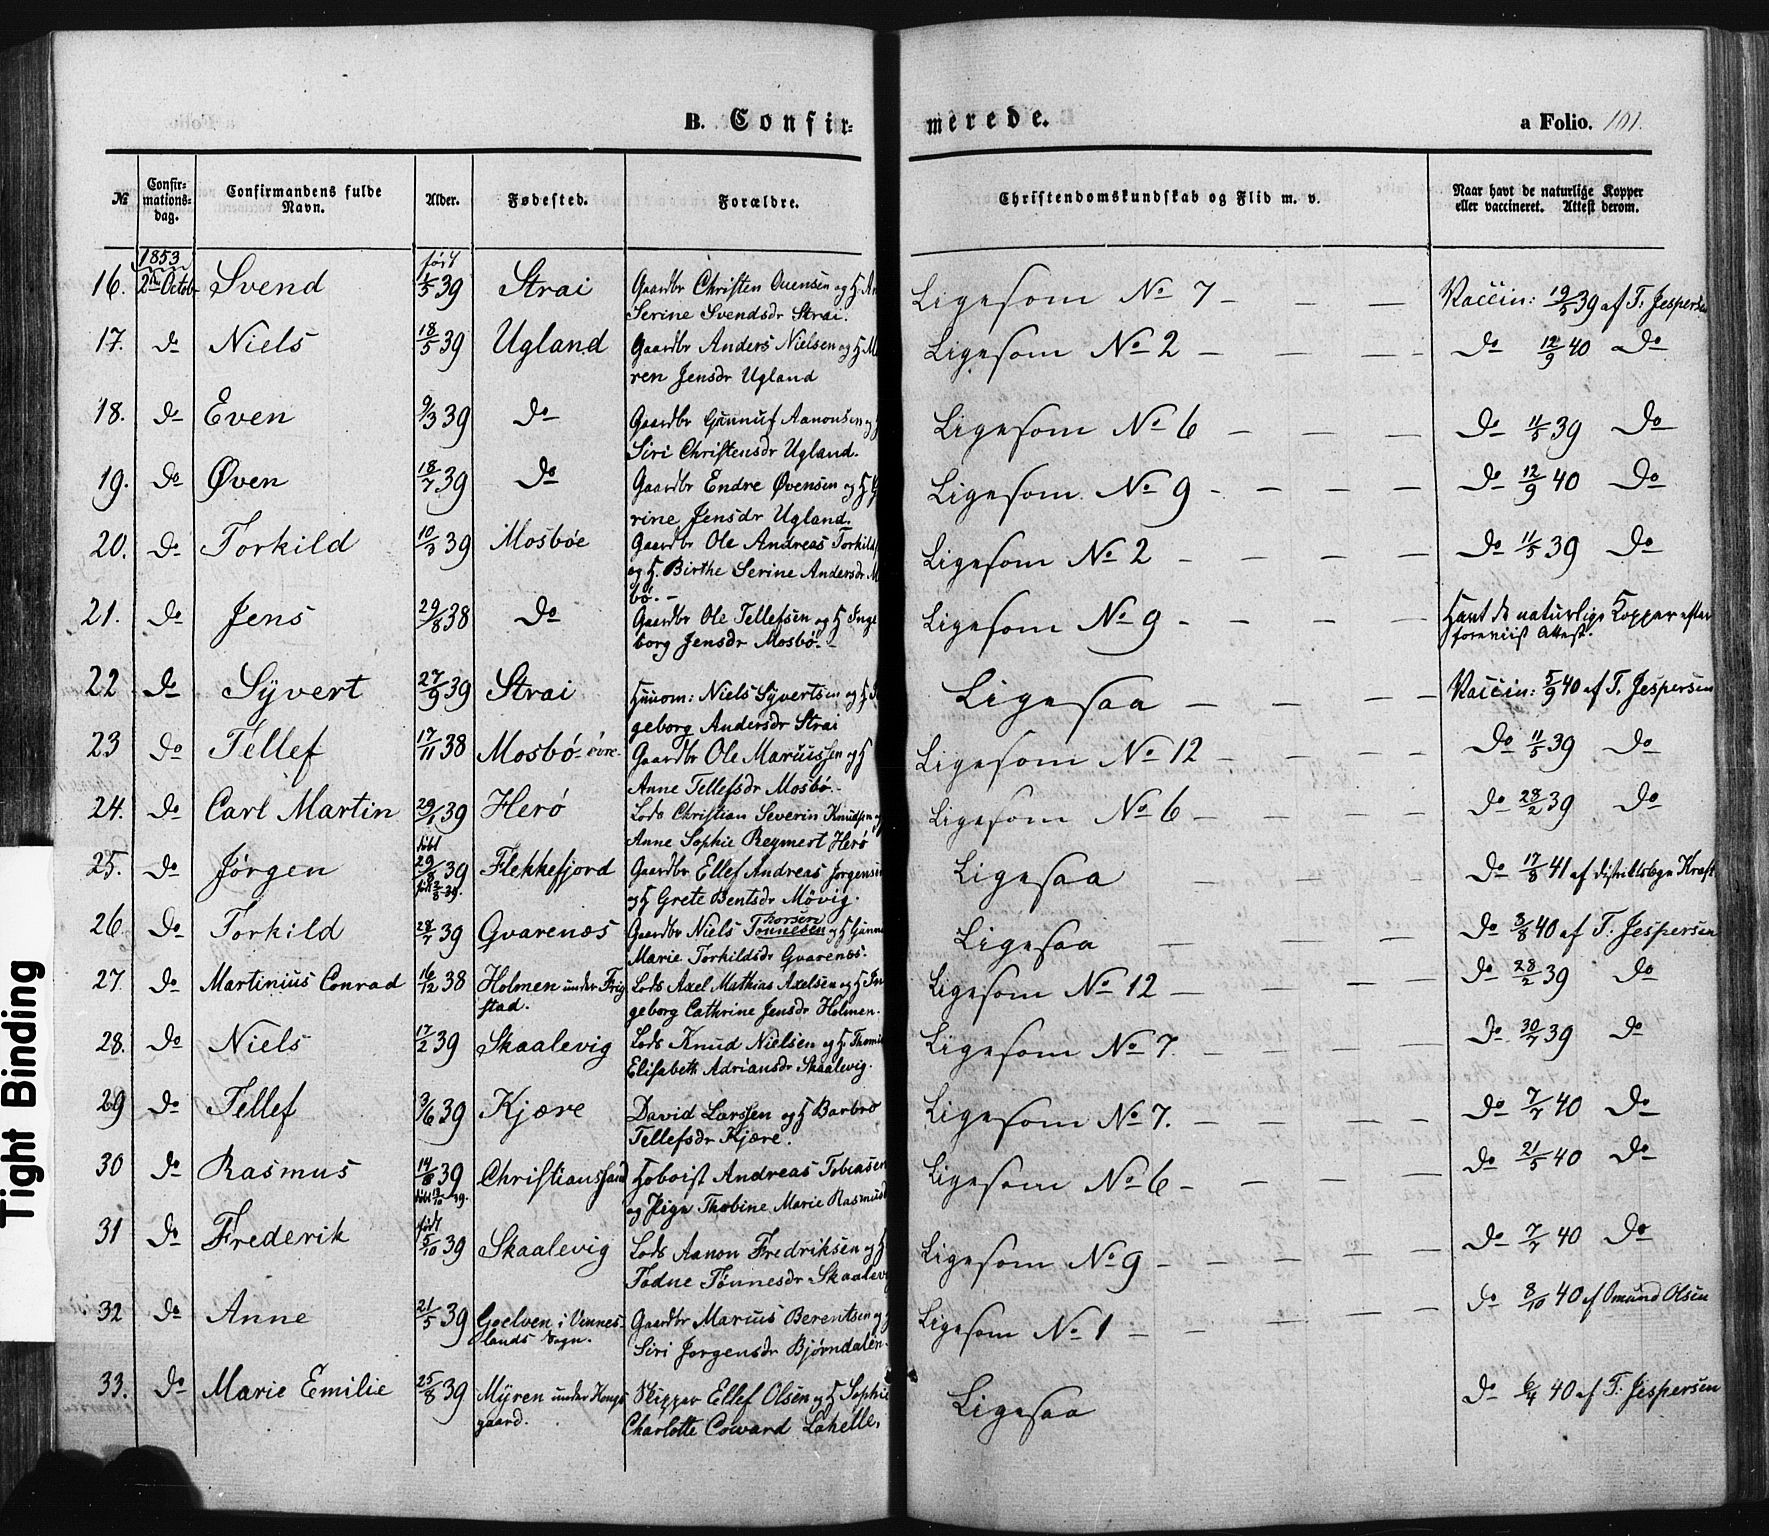 B. Confir-
merede.
a Folio. 101.
№ Confir-mations-dag. Confirmandens fulde Navn. Alder. Fødested. Forældre. Christendomskundskab og Flid m. v. Naar havt de naturlige Kopper eller vaccineret. Attest derom.
1853 født
16. 2den Octob Svend 1/5 39 Strai Gaardbr Christen Ouensen og H
Serine Svendsdr Strai. Ligesom No 7 — — — Vaccin: 19/5 39 af T. Jespersen
17. Do Niels 18/5 39 Ugland Gaardbr Anders Nielsen og H Ma
ren Jensdr Ugland Ligesom No 2 — — — Do 12/9 40 Do
18. Do Even 9/3 39 Do Gaardbr Gunnuf Aanonsen og
Siri Christensdr Ugland. Ligesom No 6 — — — Do 11/5 39 Do
19. Do Øven 18/7 39 Do Gaardbr Endre Øvensen og H
rine Jensdr Ugland. Ligesom No 9 — — — Do 12/9 40 Do
20. Do Torkild 10/3 39 Mosbøe Gaardbr Ole Andreas Torkilds
og H. Birthe Serine Andersdr M
bö. — Ligesom No 2 — — — Do 11/5 39 Do
21. Do Jens 29/8 38 Do Gaardbr Ole Tellefsen og H Inge
borg Jensdr Mosbö. — Ligesom No 9 — — — Havt de naturlige Kopper efter
foreviist Attest.
22 Do Syvert 27/9 39 Strai Huusm: Niels Syvertsen og H
geborg Andersdr Strai Ligesaa — — — Vaccin: 5/9 40 af T. Jespersen
23 Do Tellef 17/11 38 Mosbö övre Gaardbr Ole Mariussen og H
Anne Tellefsdr Mosbö. — Ligesom No 12 — — — Do 11/5 39 Do
24. Do Carl Martin 29/1 39 Herö Lods Christian Severin Knudsen og
Anne Sophie Reymert Herö Ligesom No 6 — — — Do 28/2 39 Do
25. Do Jörgen 29/8 39 Flekkefjord Gaardbr Ellef Andreas Jorgensen
og H Grete Bentsdr Mövig. Ligesaa — — — Do 17/8 41 af Distriktslæge Kraft
26. Do Torkild 28/7 39 Gvarenæs Gaardbr Niels Tönnesen Thorsen og H Gunne
Marie Torkildsdr Gvarenæs. Ligesaa — — — Do 3/8 40 af T: Jespersen
27. Do Martinius Conrad 16/12 38 Holmen under Frig
stad. Lods Axel Mathias Axelsen og H In
geborg Cathrine Jensdr Holmen. Ligesom No 12 — — — Do 28/2 39 Do
28. Do Niels 17/2 39 Skaalevig Lods Knud Nielsen og H Thomi
Elisabeth Adriansdr Skaalevig. Ligesom No 7. — — — Do 30/7 39 Do
29 Do Tellef 3/6 39 Kjære David Larssen og H Barbro
Tellefsdr Kjære. Ligesom No 7. — — — Do 7/7 40 Do
30 Do Rasmus 14/8 39 Christianssand Hoboist Andreas Tobiasen
og Pige Thobine Marie Rasmusd Ligesom No 6 — — — Do 21/5 40 Do
31 Do Frederik født 5/10 39 Skaalevig Lods Aanon Fredriksen og H
Todne Tönnesdr Skaalev Ligesom No 9 — — — Do 7/7 40 Do
32 Do Anne 21/5 39 Goelven i Vennes
lands Sogn. Gaardbr Marius Berentsen og
Siri Jorgensdr Bjørndalen. Ligesom No 1 — — — Do 8/10 40 af Omund Olsen
33. Do Marie Emilie 25/8 39 Myren under Kongs
gaard. Skipper Ellef Olsen og H Sophie
Charlotte Coward Lahelle. Ligesaa Do 6/4 40 af T: Jespersen
Tight Binding